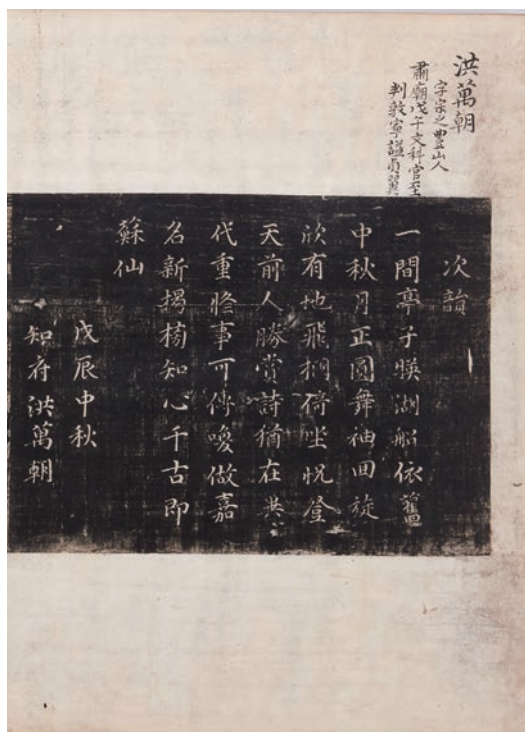 洪萬朝
字宗之豊山人
肅廟戊午文科官至
判敦寧諡貞翼
次韻
一間亭子暎湖船依舊
中秋月正圓舞袖回旋
欣有地飛倚坐怳登
天前人勝賞詩猶在異
代重修事可傳喚做嘉
名新揭榜知心千古即
蘇仙
戊辰中秋
知府洪萬朝